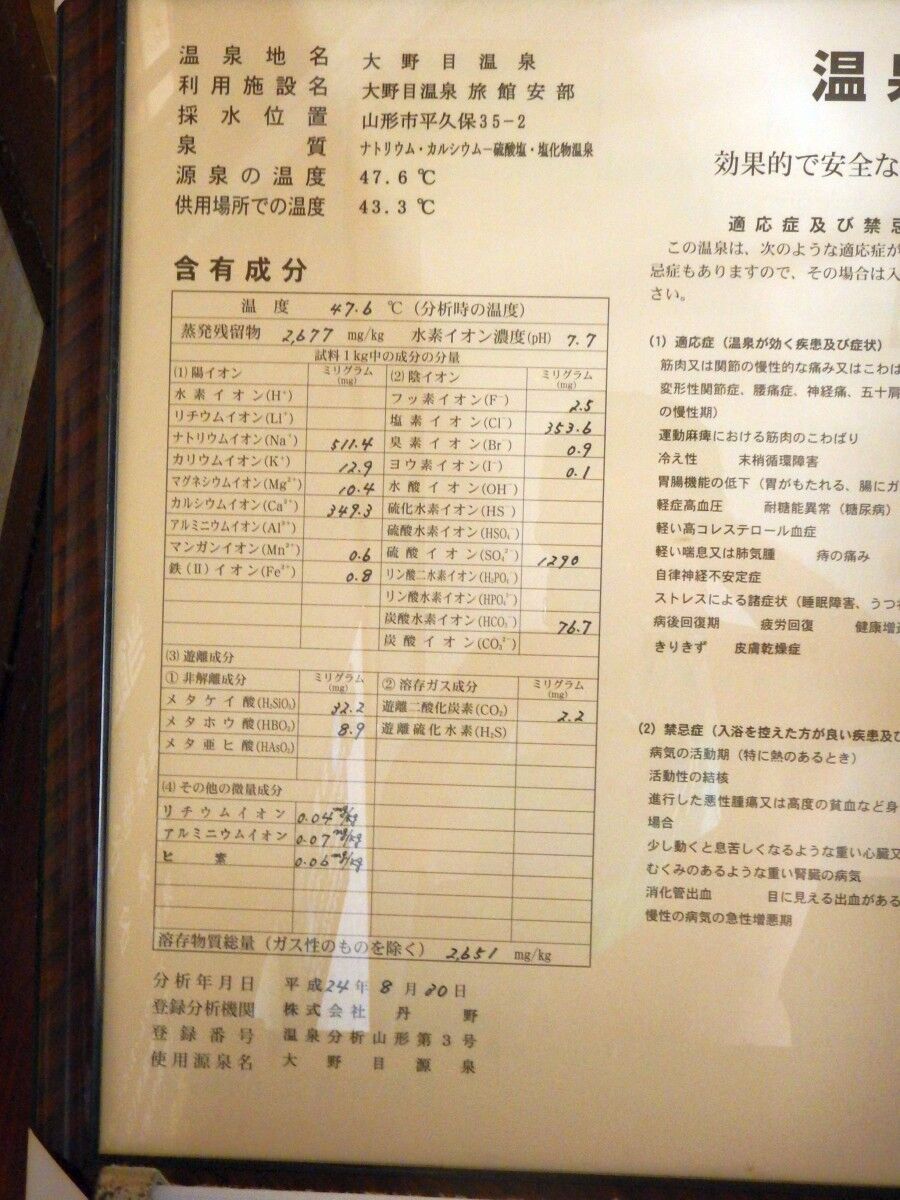 温泉地名 大野目温泉
利用施設名 大野目温泉 旅館安部
採水位置 山形市平久保35-2
泉質 ナトリウム・カルシウム−硫酸塩・塩化物温泉
源泉の温度 47.6℃
供用場所での温度 43.3℃
含有成分
温度 47.6 ℃(分析時の温度)
蒸発残留物 2,677 mg/kg 水素イオン濃度(pH) 7.7
試料1kg中の成分の分量
(1)陽イオン ミリグラム(mg) (2)陰イオン ミリグラム(mg)
水素イオン(H⁺) フッ素イオン(F⁻) 2.5
リチウムイオン(Li⁺) 塩素イオン(Cl⁻) 353.6
ナトリウムイオン(Na⁺) 511.4 臭素イオン(Br⁻) 0.9
カリウムイオン(K⁺) 12.9 ヨウ素イオン(I⁻) 0.1
マグネシウムイオン(Mg²⁺) 10.4 水酸イオン(OH⁻)
カルシウムイオン(Ca²⁺) 349.3 硫化水素イオン(HS⁻)
アルミニウムイオン(Al³⁺) 硫酸水素イオン(HSO₄⁻)
マンガンイオン(Mn²⁺) 0.6 硫酸イオン(SO₄²⁻) 1290
鉄(Ⅱ)イオン(Fe²⁺) 0.8 リン酸二水素イオン(H₂PO₄⁻)
リン酸水素イオン(HPO₄²⁻)
炭酸水素イオン(HCO₃⁻) 76.7
炭酸イオン(CO₃²⁻)
(3)遊離成分
①非解離成分 ミリグラム(mg) ②溶存ガス成分 ミリグラム(mg)
メタケイ酸(H₂SiO₃) 32.2 遊離二酸化炭素(CO₂) 2.2
メタホウ酸(HBO₂) 8.9 遊離硫化水素(H₂S)
メタ亜ヒ酸(HAsO₂)
(4)その他の微量成分
リチウムイオン 0.04mg/kg
アルミニウムイオン 0.07mg/kg
ヒ素 0.06mg/kg
溶存物質総量(ガス性のものを除く) 2,651 mg/kg
分析年月日 平成24年8月30日
登録分析機関 株式会社 丹野
登録番号 温泉分析山形第3号
使用源泉名 大野目源泉
温
効果的で安全な
適応症及び禁忌
この温泉は、次のような適応症が
忌症もありますので、その場合は入
さい。
(1) 適応症(温泉が効く疾患及び症状)
筋肉又は関節の慢性的な痛み又はこわば
変形性関節症、腰痛症、神経痛、五十肩
の慢性期)
運動麻痺における筋肉のこわばり
冷え性 末梢循環障害
胃腸機能の低下(胃がもたれる、腸にガ
軽症高血圧 耐糖能異常(糖尿病)
軽い高コレステロール血症
軽い喘息又は肺気腫 痔の痛み
自律神経不安定症
ストレスによる諸症状(睡眠障害、うつ
病後回復期 疲労回復 健康増
きりきず 皮膚乾燥症
(2) 禁忌症(入浴を控えた方が良い疾患及び
病気の活動期(特に熱のあるとき)
活動性の結核
進行した悪性腫瘍又は高度の貧血など身
場合
少し動くと息苦しくなるような重い心臓又
むくみのあるような重い腎臓の病気
消化管出血 目に見える出血がある
慢性の病気の急性増悪期